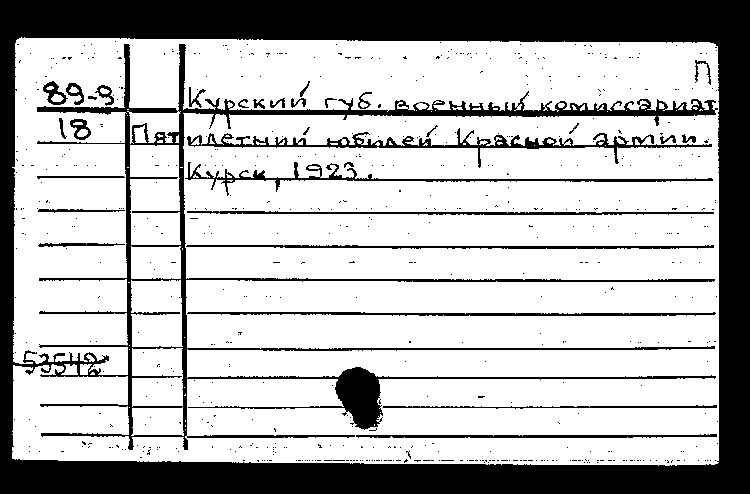 П
89-9 Курский губ. военный комиссариат
18 Пятилетний юбилей Красной армии.
Курск, 1923.
53542